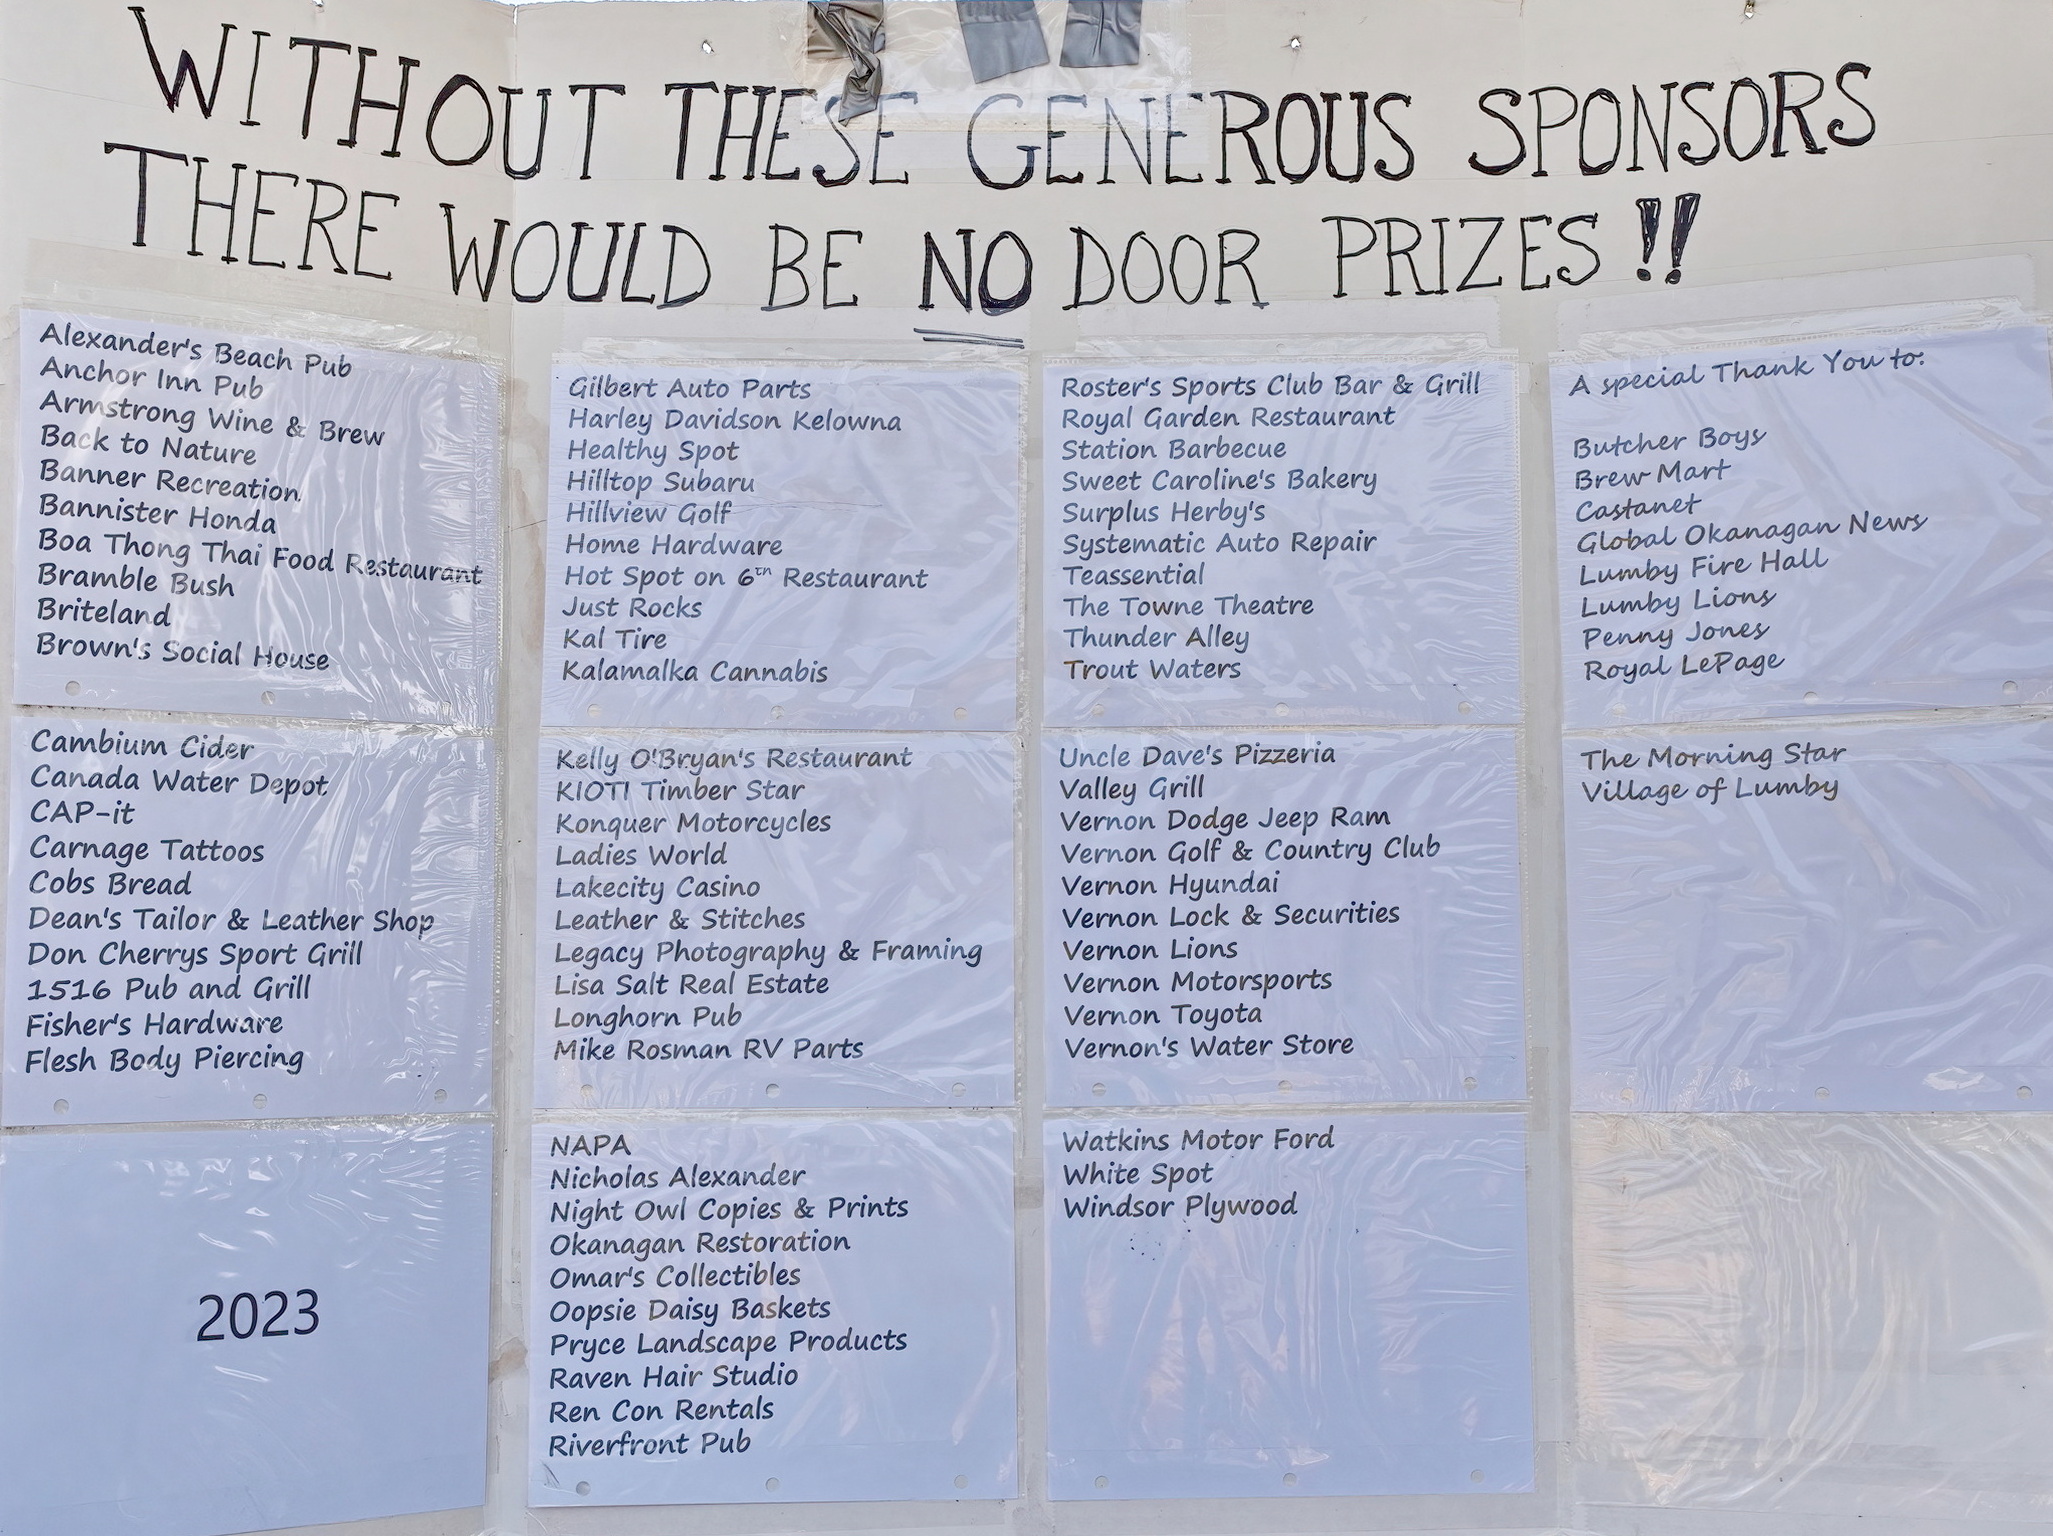 WITHOUT THESE GENEROUS SPONSORS
THERE WOULD BE NO DOOR PRIZES!!
Alexander's Beach Pub
Anchor Inn Pub
Armstrong Wine & Brew
Back to Nature
Banner Recreation
Bannister Honda
Boa Thong Thai Food Restaurant
Bramble Bush
Briteland
Brown's Social House
Cambium Cider
Canada Water Depot
CAP-it
Carnage Tattoos
Cobs Bread
Dean's Tailor & Leather Shop
Don Cherrys Sport Grill
1516 Pub and Grill
Fisher's Hardware
Flesh Body Piercing
2023
Gilbert Auto Parts
Harley Davidson Kelowna
Healthy Spot
Hilltop Subaru
Hillview Golf
Home Hardware
Hot Spot on 6th Restaurant
Just Rocks
Kal Tire
Kalamalka Cannabis
Kelly O'Bryan's Restaurant
KIOTI Timber Star
Konquer Motorcycles
Ladies World
Lakecity Casino
Leather & Stitches
Legacy Photography & Framing
Lisa Salt Real Estate
Longhorn Pub
Mike Rosman RV Parts
NAPA
Nicholas Alexander
Night Owl Copies & Prints
Okanagan Restoration
Omar's Collectibles
Oopsie Daisy Baskets
Pryce Landscape Products
Raven Hair Studio
Ren Con Rentals
Riverfront Pub
Roster's Sports Club Bar & Grill
Royal Garden Restaurant
Station Barbecue
Sweet Caroline's Bakery
Surplus Herby's
Systematic Auto Repair
Teassential
The Towne Theatre
Thunder Alley
Trout Waters
Uncle Dave's Pizzeria
Valley Grill
Vernon Dodge Jeep Ram
Vernon Golf & Country Club
Vernon Hyundai
Vernon Lock & Securities
Vernon Lions
Vernon Motorsports
Vernon Toyota
Vernon's Water Store
Watkins Motor Ford
White Spot
Windsor Plywood
A special Thank You to:
Butcher Boys
Brew Mart
Castanet
Global Okanagan News
Lumby Fire Hall
Lumby Lions
Penny Jones
Royal LePage
The Morning Star
Village of Lumby